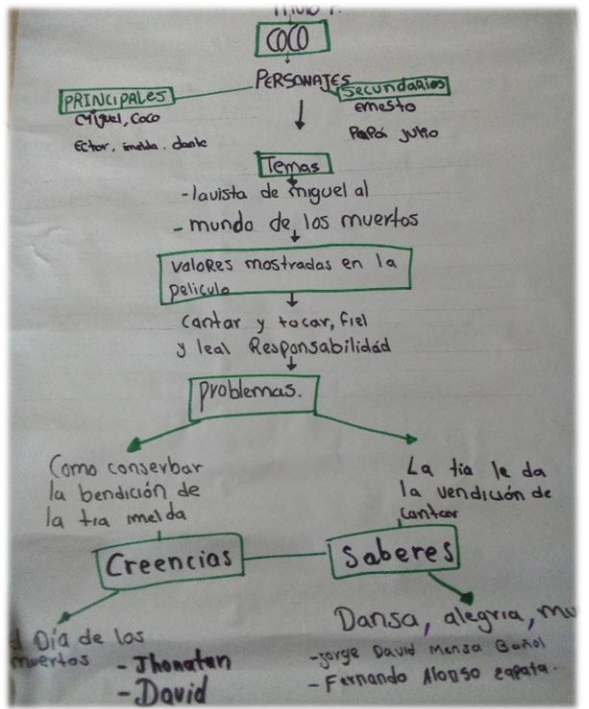 COCO
PERSONAJES
PRINCIPALES
Miguel, Coco
Ector, imelda, dante
Secundarios
ernesto
Papá julio
Temas
-lavista de miguel al
- mundo de los muertos
valores mostradas en la
pelicula
cantar y tocar, fiel
y leal Responsabilidad
problemas.
Como conserbar
la bendición de
la tia imelda
La tia le da
la vendición de
cantar
Creencias
Saberes
Día de los
muertos
- Jhonatan
- David
Dansa, alegria, mu
-jorge David Mensa
- Fernando Alonso zapata.